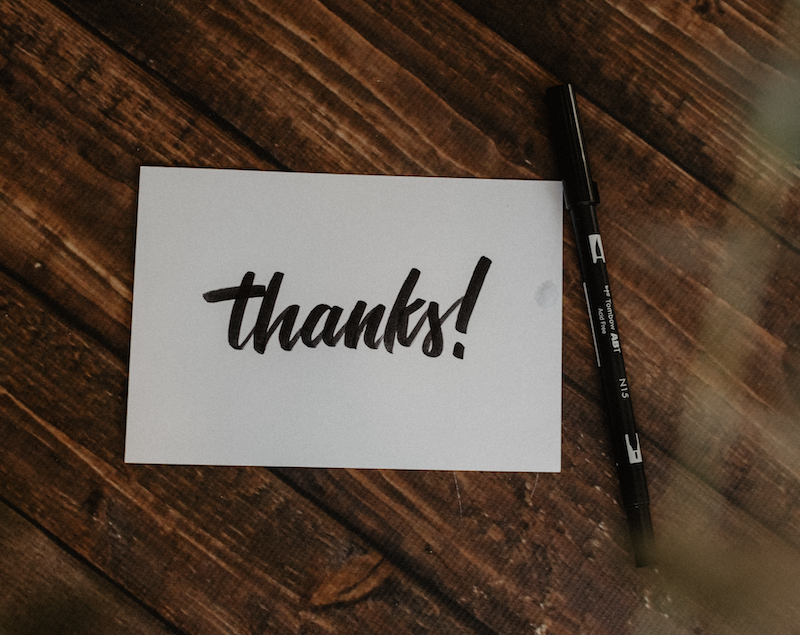 thanks!
Tombow ABT
Acid Free
N15